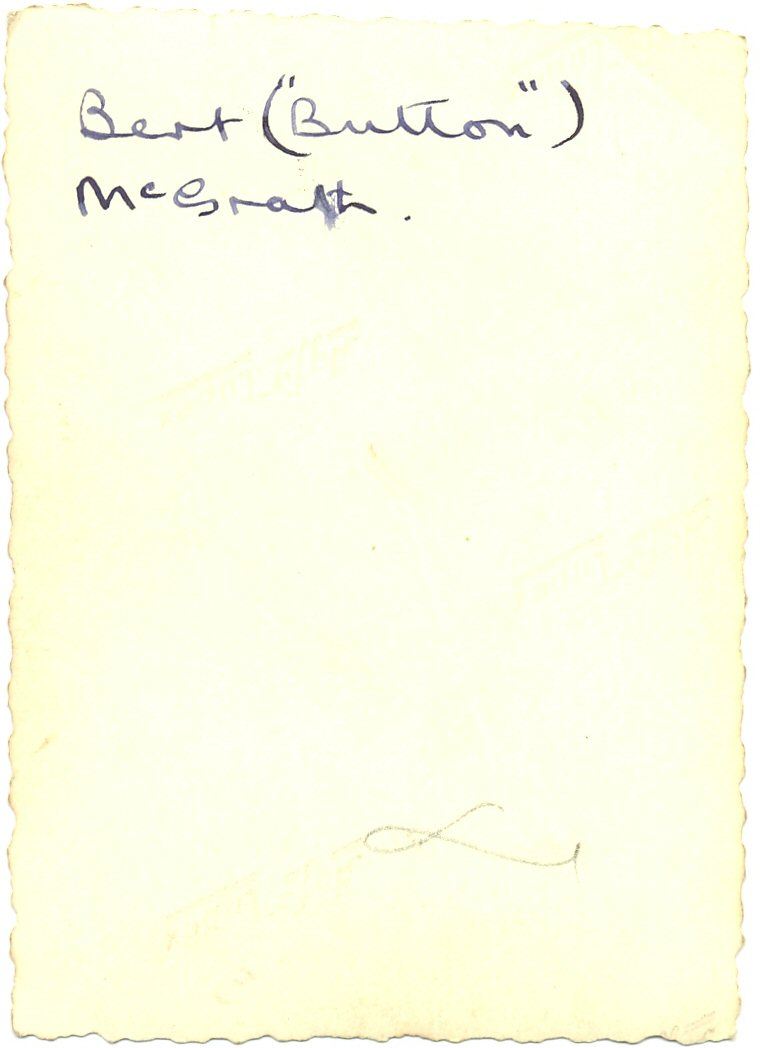 Bert ("Button")
McGrath.